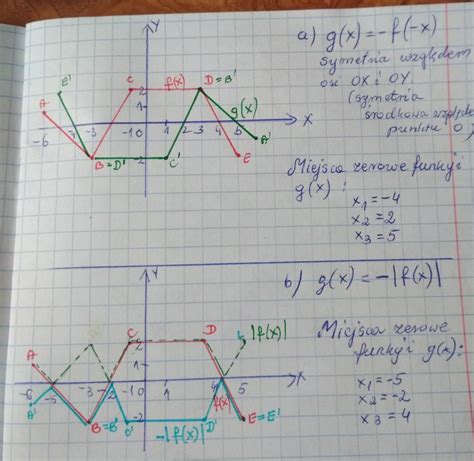 Y
a) g(x) = -f(-x)
symetria względem
osi OX i OY
(symetria
środkowa względem
punktu O)
E' C f(x) D=B'
A g(x)
2
1
-6 -3 -1 0 2 3 4 5 X
A'
B=D' C' E
Miejsca zerowe funkcji
g(x):
x₁ = -4
x₂ = 2
x₃ = 5
Y
b) g(x) = -|f(x)|
C D |f(x)|
A
2
-6 -5 -3 -2 -1 0 1 2 3 4 5 X
A' f(x)
-2
B=B' C' -|f(x)| D' E=E'
Miejsca zerowe
funkcji g(x):
x₁ = -5
x₂ = -2
x₃ = 4